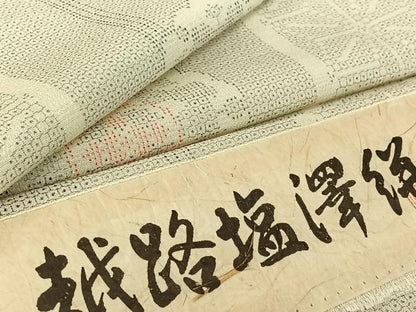 越路塩澤絣